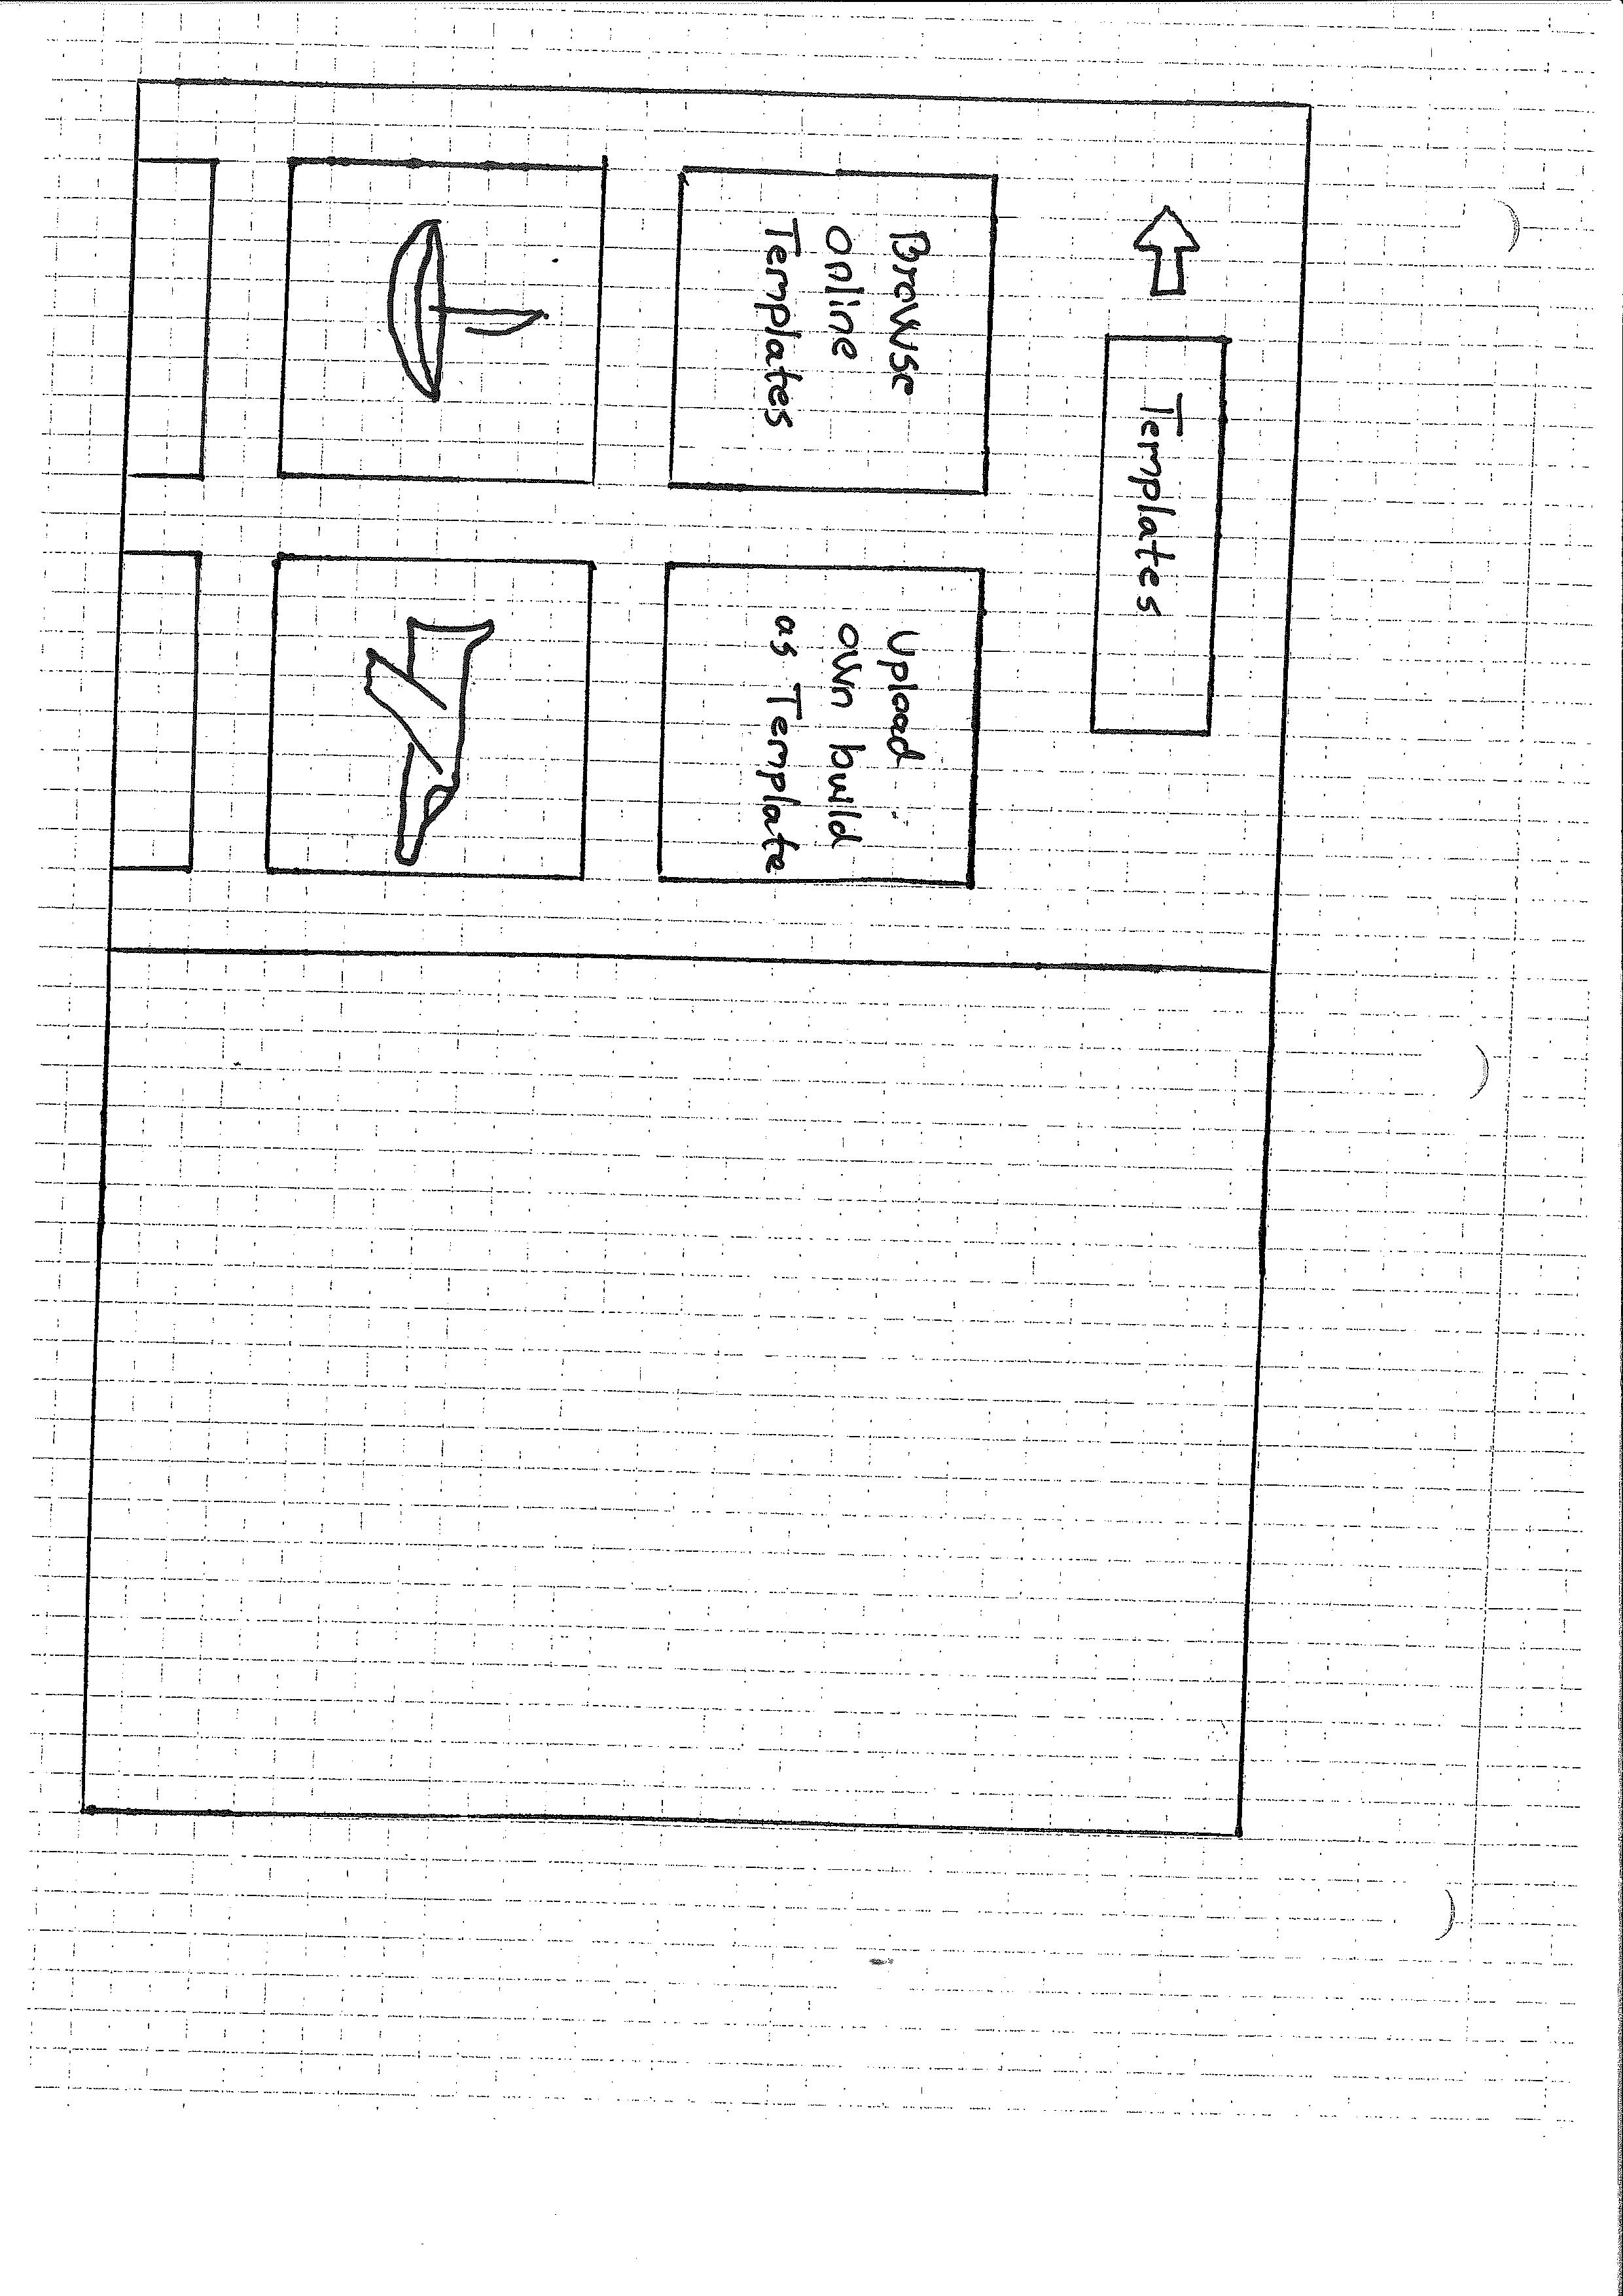 Templates
Browse
Online
Templates
Upload
own build
as Template